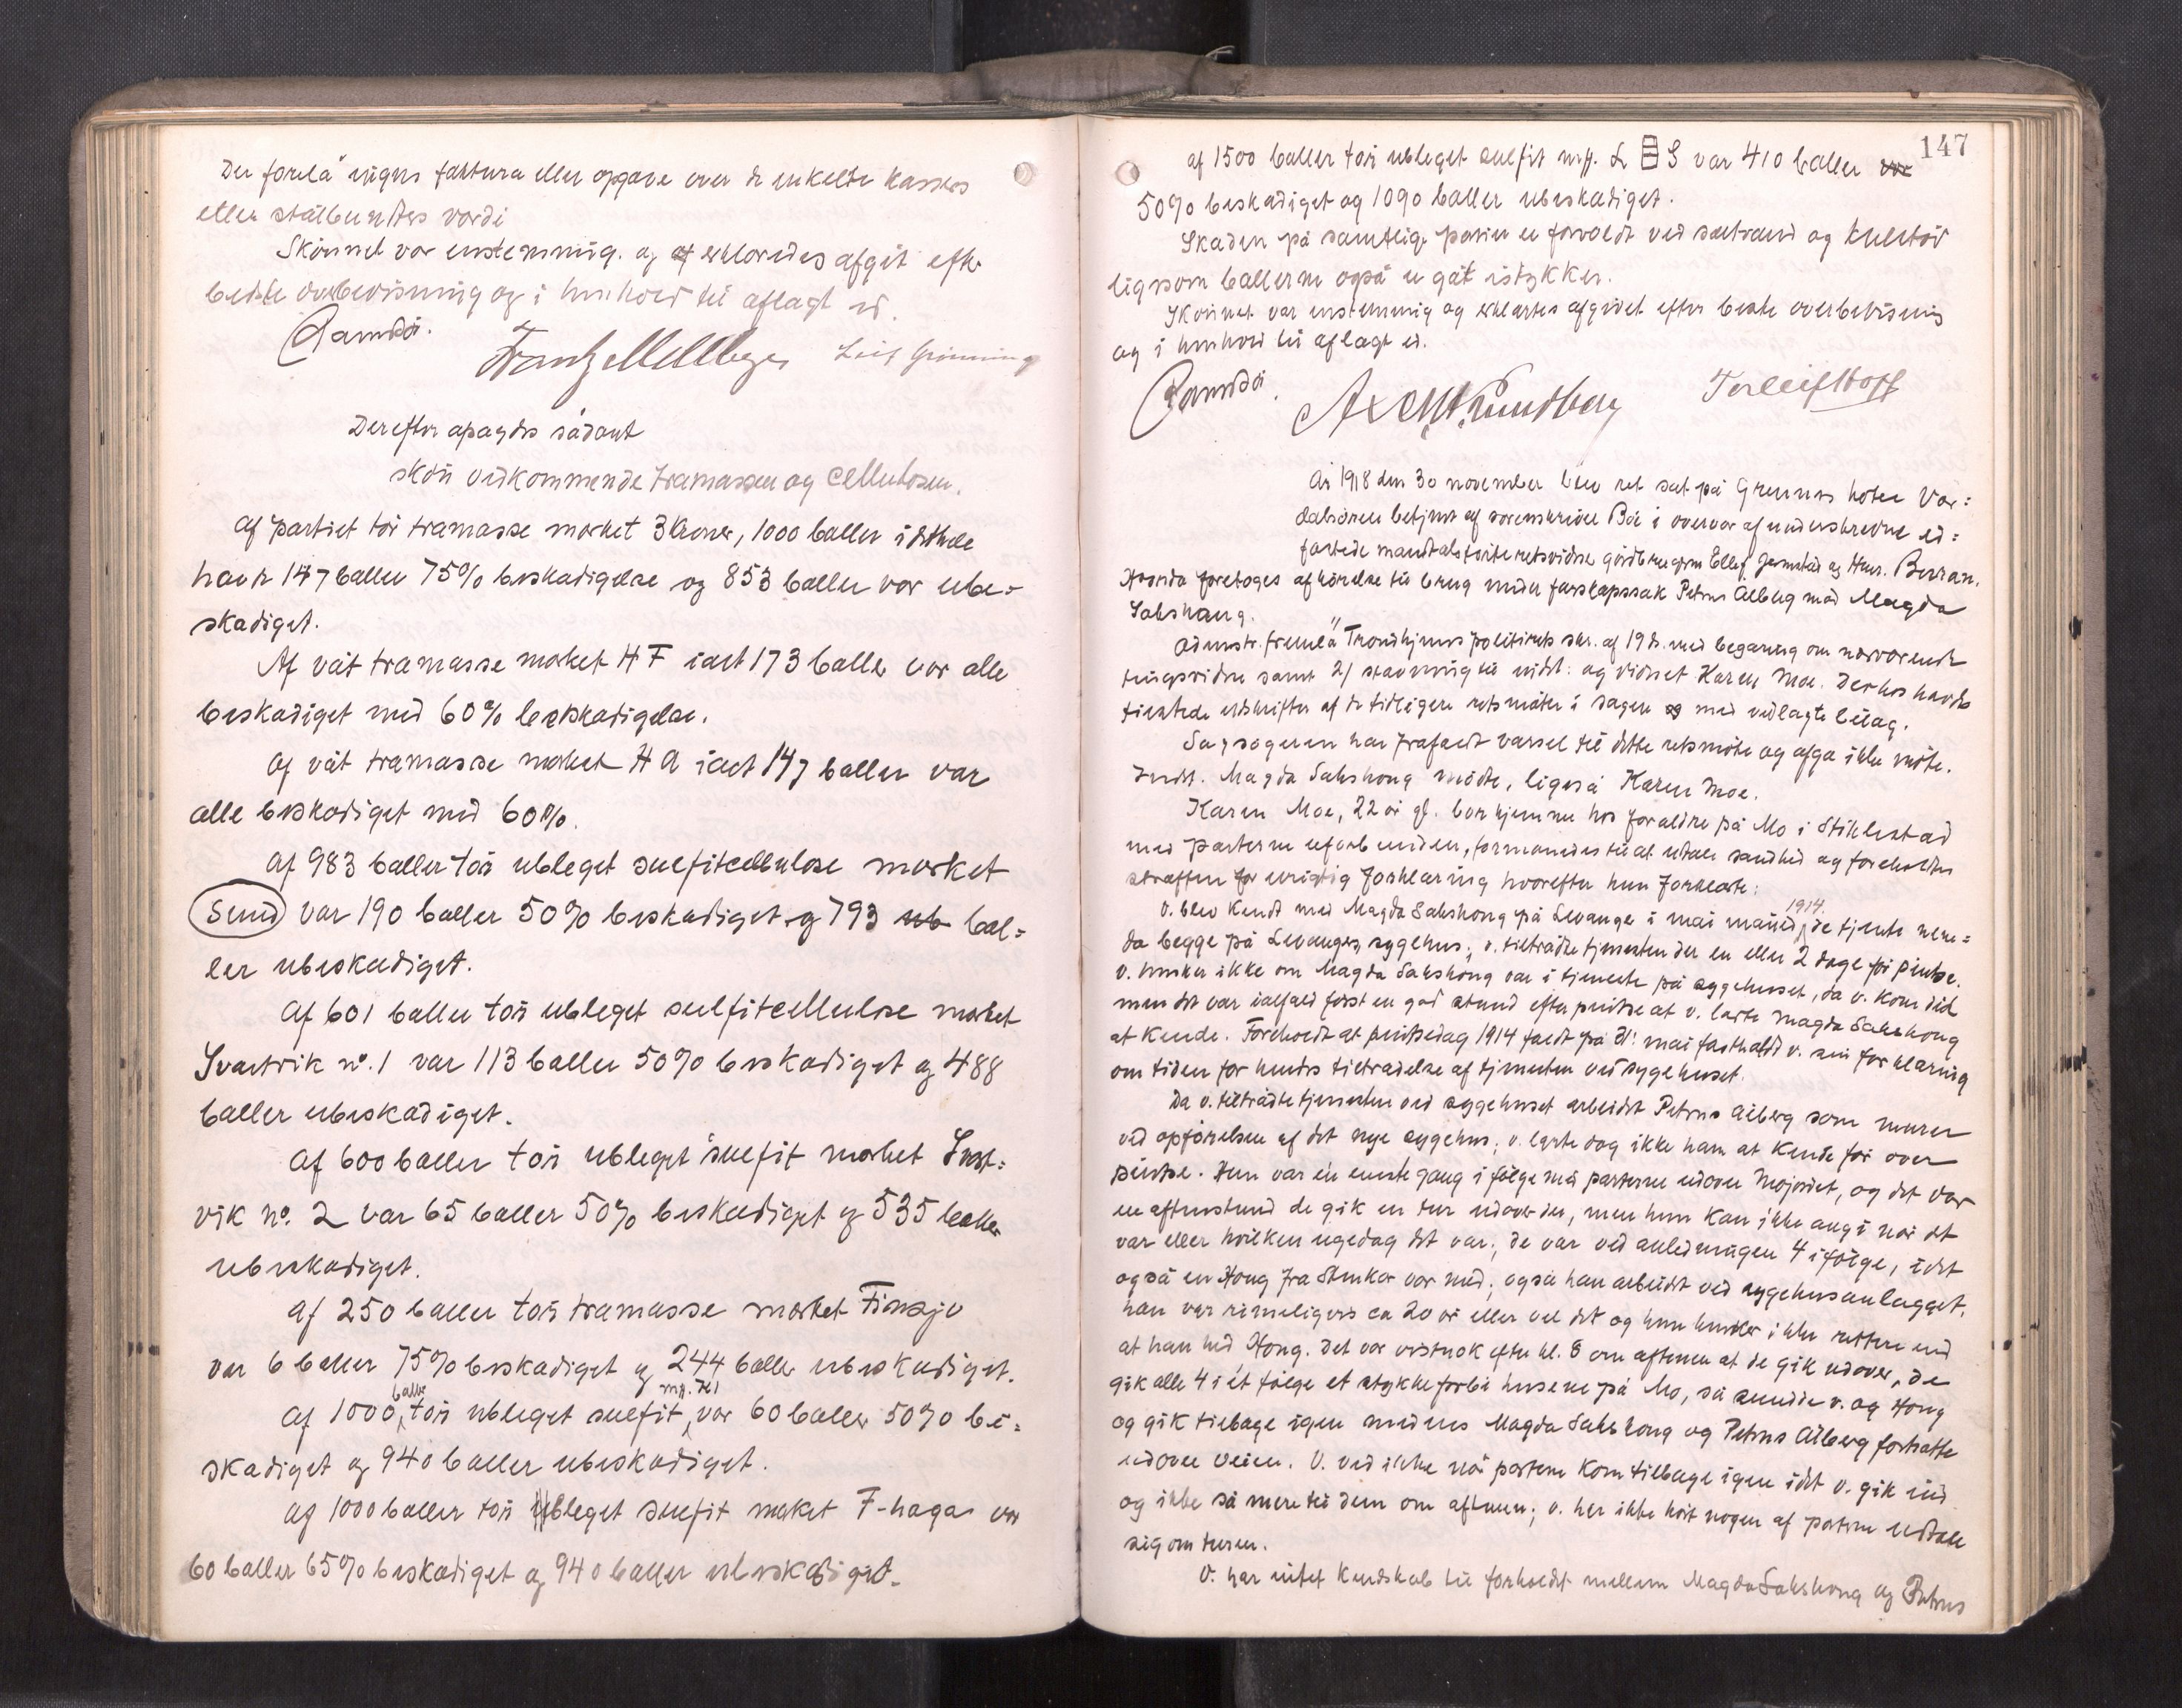 Der forelå ingen faktura eller opgave over de enkelte kassers
eller stålbundtes værdi
Skjönnet var enstemmig. og erklæredes afgit efter
bedste overbevisning og i henhold til aflagt ed.
Leif Grönning
Derefter afsagdes sådant
skjön vedkommende tramassen og cellulosen.
Af partiet tör tramasse mærket 3 Kroner, 1000 baller i dethele
havde 147 baller 75% beskadigelse og 853 baller var ube=
skadiget.
Af våt tramasse mærket H F ialt 173 baller var alle
beskadiget med 60% beskadigelse.
Af våt tramasse mærket H A ialt 147 baller var
alle beskadiget med 60%.
Af 983 baller tör ubleget sulfitcellulose mærket
Sund var 190 baller 50% beskadiget og 793 ub bal=
ler ubeskadiget.
Af 601 baller tör ubleget sulfitcellulose mærket
Svartvik nº. 1 var 113 baller 50% beskadiget og 488
baller ubeskadiget.
Af 600 baller tör ubleget sulfit mærket Svart=
vik nº. 2 var 65 baller 50% beskadiget og 535 baller
ubeskadiget.
Af 250 baller tör tramasse mærket Finsjø
var 6 baller 75% beskadiget og 244 baller ubeskadiget.
Af 1000 baller tör ubleget sulfit mrk. var 60 baller 50% be=
skadiget og 940 baller ubeskadiget.
Af 1000 baller tör ubleget sulfit mærket F-haga var
60 baller 65% beskadiget og 940 baller ubeskadiget.
147
af 1500 baller tör ubleget sulfit mrk. L S var 410 baller var
50% beskadiget og 1090 baller ubeskadiget.
Skaden på samtlige partier er forvoldt ved saltvand og kulstöv
ligesom ballerne også er gåt istykker.
Skjönnet var enstemmig og erklærtes afgivet efter beste overbevisning
og i henhold til aflagt ed.
Axel M. Lundberg Torleif Hoff
År 1918 den 30 november blev ret sat på Grenns hotel Vær=
dalsören betjent af sorenskriver Bö i overvær af underskrevne ed=
fæstede mandtalsförte retsvidner gårdbruger Ellef og Hans Bersås.
Hvorda foretoges afhörelse til brug under farskapssak Petrus Ålberg mod Magda
Sakshaug.
Adminstr. fremla Trondhjems politirets skr. af 19 ds. med begæring om nærværende
tingsvidne samt 2/ stævning til indst. og vidnet Karen Moe. Derhos havde
tilstede utskrifter af de tidligere retsmöter i sagen og med vedlagte bilag.
Sagsögeren har frafaldt varsel til dette retsmöte og afga ikke möte.
Indst. Magda Sakshaug mödte, ligeså Karen Moe.
Karen Moe, 22 år gl. bor hjemme hos forældre på Mo i Stiklestad
med parterne uforbunden, formanedes til at udtale sandhed og foreholdtes
straffen for urigtig forklaring hvorefter hun forklarte:
V. blev kendt med Magda Sakshaug på Levanger i mai måned 1914, de tjente nem=
da begge på Levanger sygehus; v. tiltrådte tjenesten der en eller 2 dage för pintse.
V. husker ikke om Magda Sakshaug var i tjeneste på sygehuset, da v. kom did
men det var ialfald först en god stund efter pintse at v. lærte Magda Sakshaug
at kende. Foreholdt at pintsedag 1914 faldt på 31. mai fastholdt v. sin forklaring
om tiden for hendes tiltrædelse af tjenesten ved sygehuset.
Da v. tiltrådte tjenesten ved sygehuset arbeidet Petrus Ålberg som murer
ved opförelsen af det nye sygehus; v. lærte dog ikke ham at kende för over
pintse. Hun var en eneste gang i fölge med parterne udover Mojordet, og det var
en aftenstund de gik en tur udover der, men hun kan ikke angi når det
var eller hvilken ugedag det var; de var ved anledningen 4 i fölge, idet
også en Hong fra Stenkær var med; også han arbeidet ved sygehusanlægget.
han var rimeligvis ca 20 år eller vel det og hun husker ikke rettere end
at han hed Hong. Det var vistnok efter kl. 8 om aftenen at de gik udover, de
gik alle 4 i ét fölge et stykke forbi husene på Mo, så snudde v. og Hong
og gik tilbage igen medens Magda Sakshaug og Petrus Ålberg fortsatte
udover veien. V. ved ikke når parterne kom tilbage igen idet v. gik ind
og ikke så mere til dem om aftenen; v. har ikke hört nogen af parterne udtale
sig om turen.
V. har intet kendskab til forholdet mellem Magda Sakshaug og Petrus